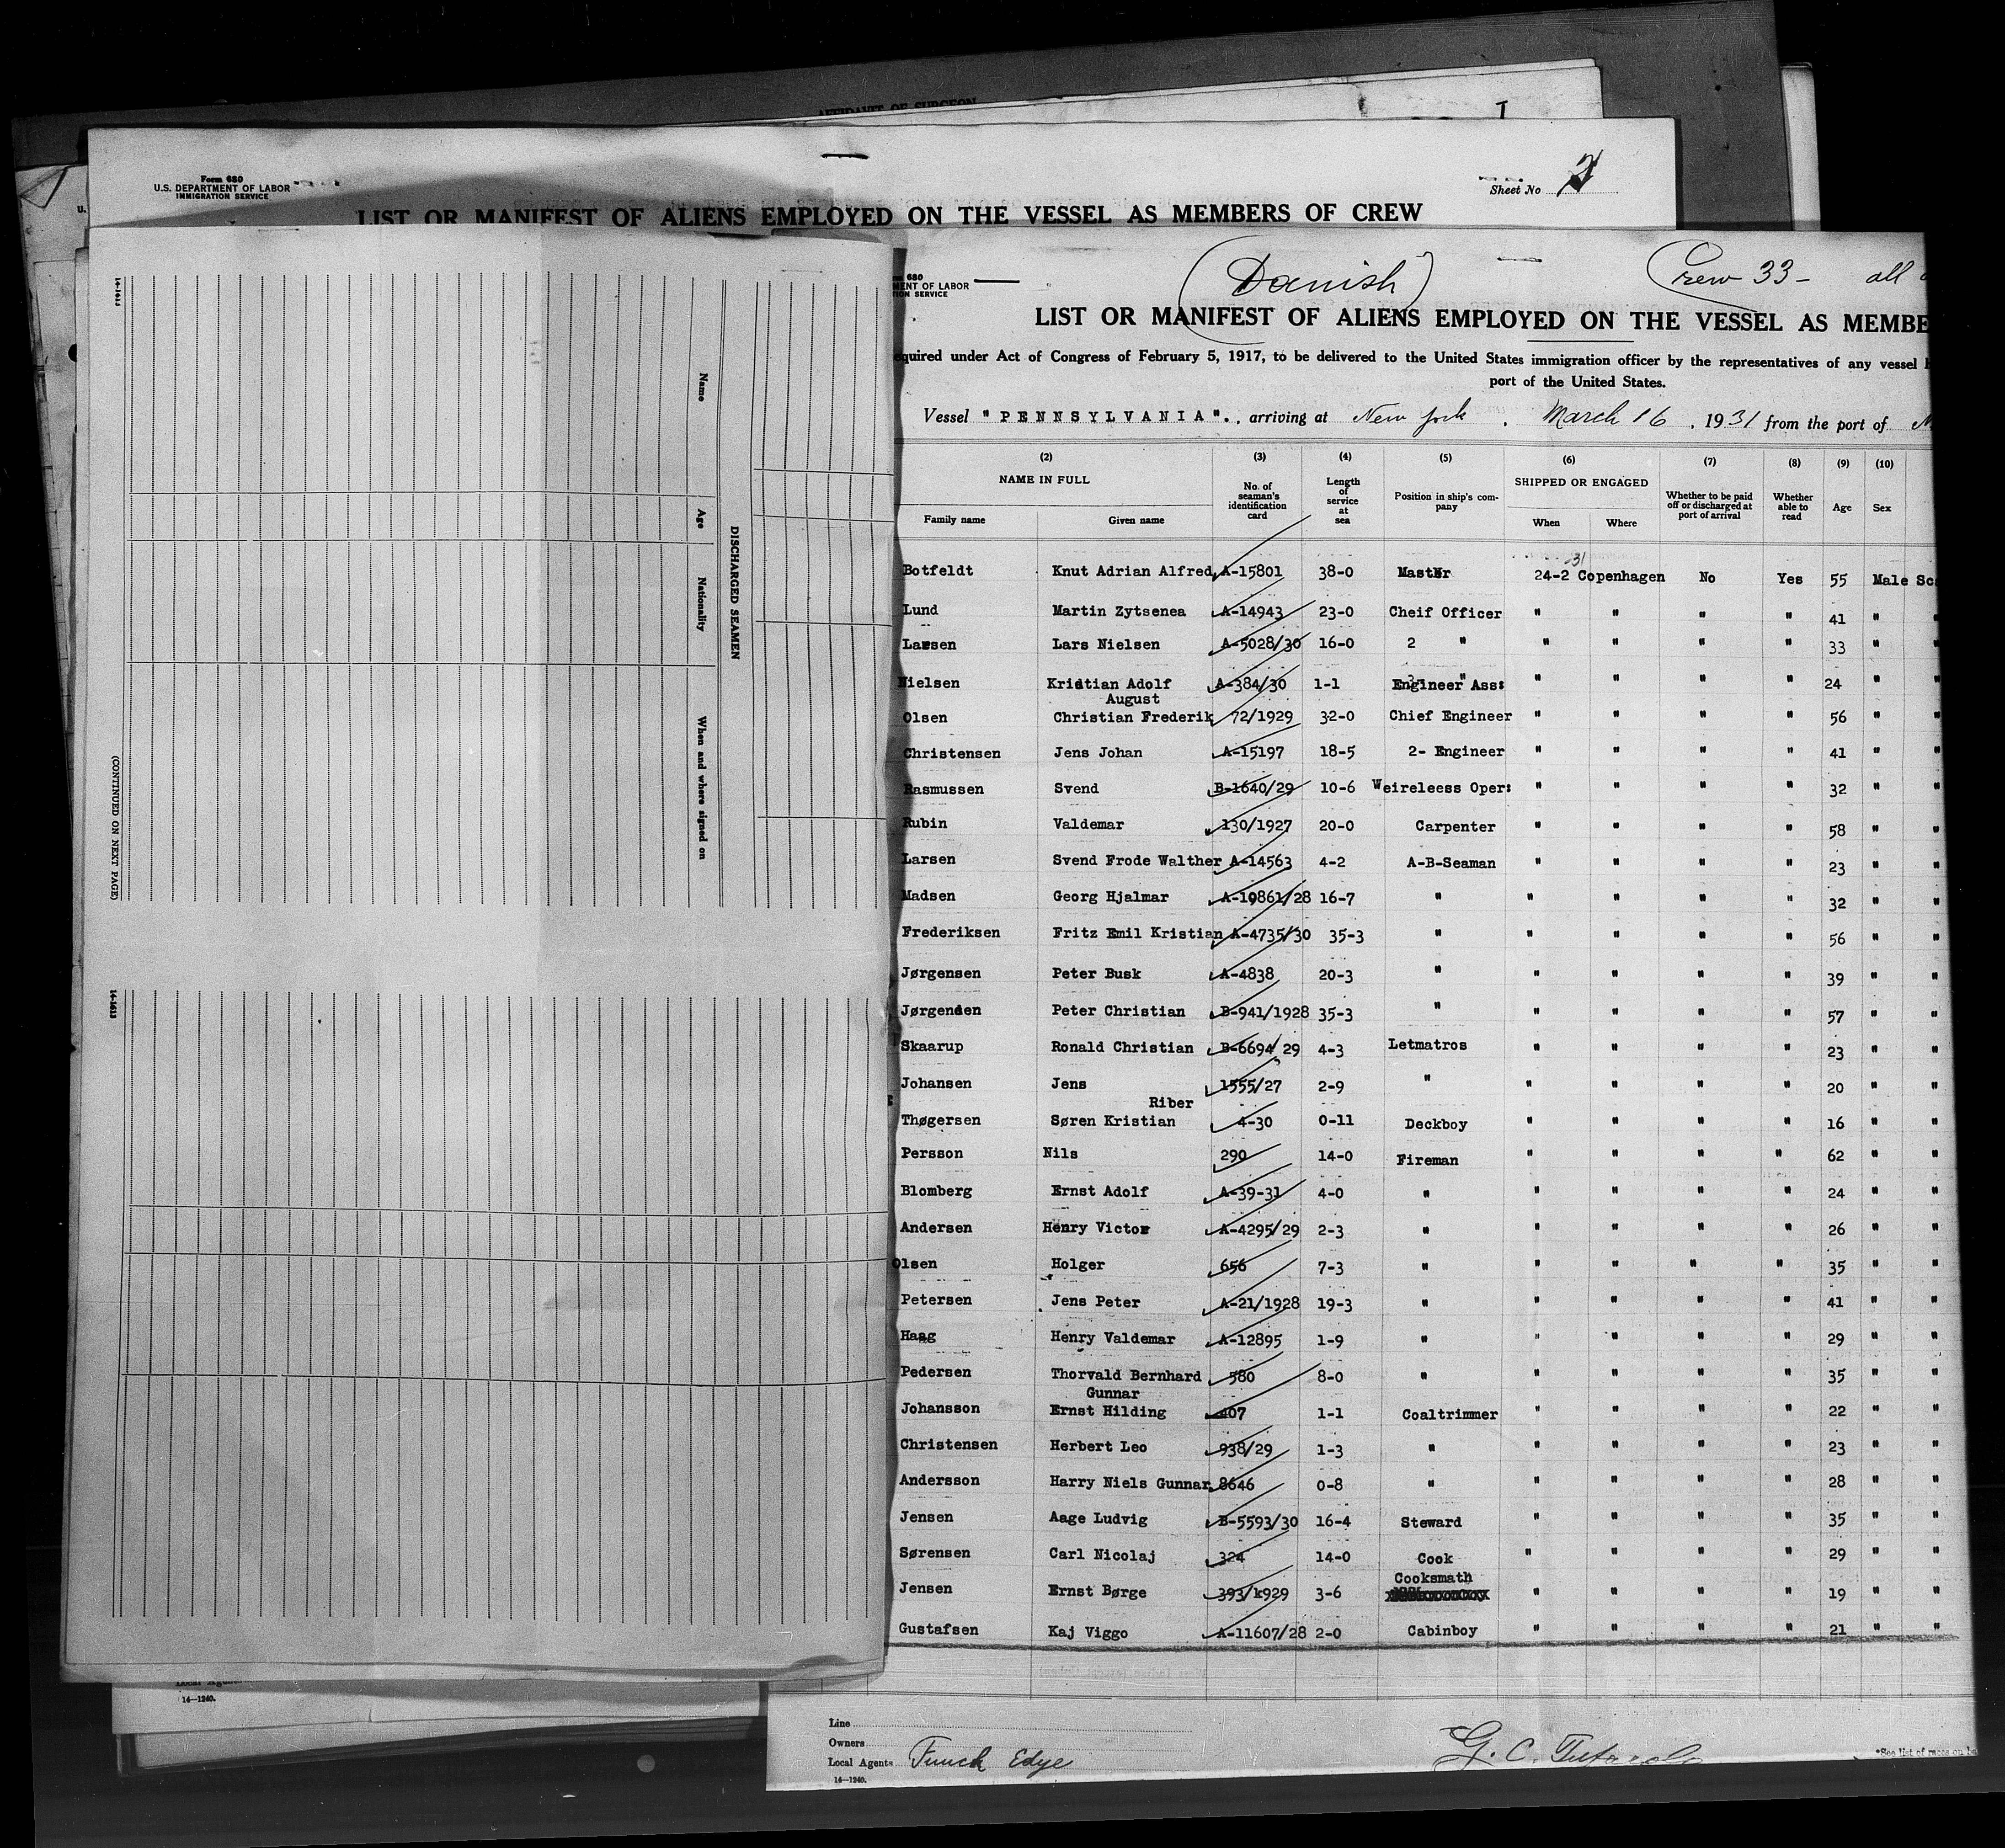 AFFIDAVIT OF SURGEON
Form 680
U.S. DEPARTMENT OF LABOR
IMMIGRATION SERVICE
Sheet No
LIST OR MANIFEST OF ALIENS EMPLOYED ON THE VESSEL AS MEMBERS OF CREW
14-1613
Name
Age
Nationality
When and where signed on
DISCHARGED SEAMEN
(CONTINUED ON NEXT PAGE)
14-1613
680
MENT OF LABOR
ION SERVICE
(Danish)
Crew 33- all
LIST OR MANIFEST OF ALIENS EMPLOYED ON THE VESSEL AS MEMBE
equired under Act of Congress of February 5, 1917, to be delivered to the United States immigration officer by the representatives of any vessel
port of the United States.
Vessel "PENNSYLVANIA"., arriving at New York, March 16, 1931 from the port of
(2) (3) (4) (5) (6) (7) (8) (9) (10)
NAME IN FULL No. of seaman's identification card Length of service at sea Position in ship's company SHIPPED OR ENGAGED Whether to be paid off or discharged at port of arrival Whether able to read Age Sex
Family name Given name When Where
31
Botfeldt Knut Adrian Alfred A-15801 38-0 Master 24-2 Copenhagen No Yes 55 Male Sc
Lund Martin Zytsenea A-14943 23-0 Cheif Officer " " " " 41 " "
Larsen Lars Nielsen A-5028/30 16-0 2 " " " " " 33 " "
Nielsen Kristian Adolf A-384/30 1-1 Engineer Ass: " " " " 24 " "
August
Olsen Christian Frederik 72/1929 32-0 Chief Engineer " " " " 56 " "
Christensen Jens Johan A-15197 18-5 2- Engineer " " " " 41 " "
Rasmussen Svend B-1640/29 10-6 Weireleess Oper: " " " " 32 " "
Rubin Valdemar 130/1927 20-0 Carpenter " " " " 58 " "
Larsen Svend Frode Walther A-14563 4-2 A-B-Seaman " " " " 23 " "
Madsen Georg Hjalmar A-10861/28 16-7 " " " " " 32 " "
Frederiksen Fritz Emil Kristian A-4735/30 35-3 " " " " " 56 " "
Jørgensen Peter Busk A-4838 20-3 " " " " " 39 " "
Jørgenden Peter Christian B-941/1928 35-3 " " " " " 57 " "
Skaarup Ronald Christian B-6694/29 4-3 Letmatros " " " " 23 " "
Johansen Jens 1555/27 2-9 " " " " " 20 " "
Riber
Thøgersen Søren Kristian 4-30 0-11 Deckboy " " " " 16 " "
Persson Nils 290 14-0 Fireman " " " " 62 " "
Blomberg Ernst Adolf A-39-31 4-0 " " " " " 24 " "
Andersen Henry Victor A-4295/29 2-3 " " " " " 26 " "
Olsen Holger 656 7-3 " " " " " 35 " "
Petersen Jens Peter A-21/1928 19-3 " " " " " 41 " "
Haag Henry Valdemar A-12895 1-9 " " " " " 29 " "
Pedersen Thorvald Bernhard 580 8-0 " " " " " 35 " "
Gunnar
Johansson Ernst Hilding 407 1-1 Coaltrimmer " " " " 22 " "
Christensen Herbert Leo 938/29 1-3 " " " " " 23 " "
Andersson Harry Niels Gunnar 8646 0-8 " " " " " 28 " "
Jensen Aage Ludvig B-5593/30 16-4 Steward " " " " 35 " "
Sørensen Carl Nicolaj 324 14-0 Cook " " " " 29 " "
Cooksmath
Jensen Ernst Børge 393/1929 3-6 " " " " 19 " "
Gustafsen Kaj Viggo A-11607/28 2-0 Cabinboy " " " " 21 " "
14—1240.
Line
Owners
Local Agents Funch Edye
14—1240.
G. C.
*See list of races on ba